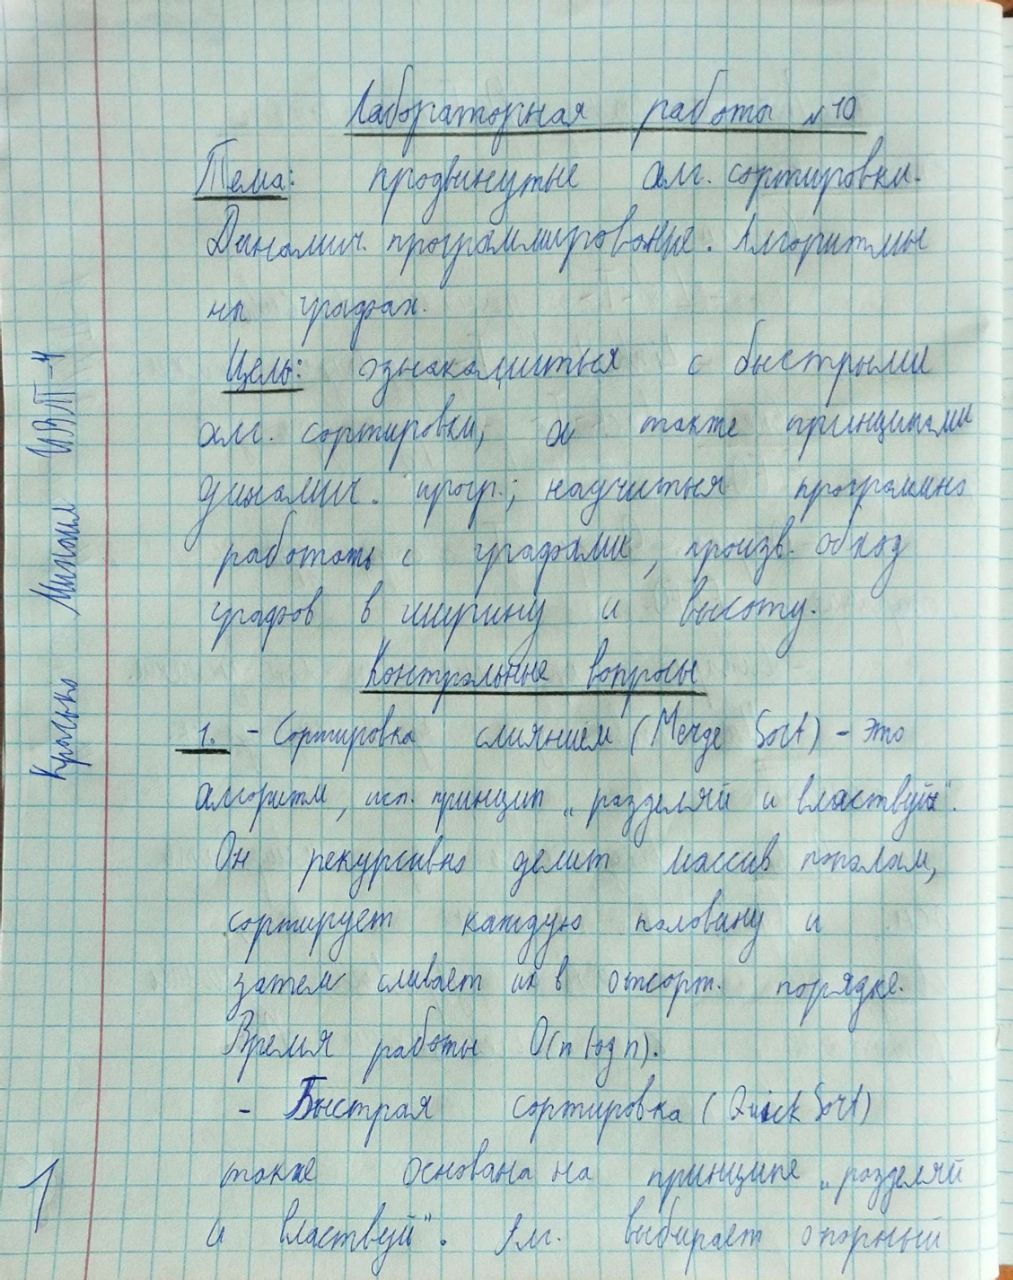 Лабораторная работы №10
Тема: продвинутые алг. сортировки.
Динамич. программирование. Алгоритмы
на графах.
Цель: ознакомиться с быстрыми
алг. сортировки, а также принципами
динамич. прогр.; научиться програмно
работать с графами, произв. обход
графов в ширину и высоту.
Контрольные вопросы
1. - Сортировка слиянием (Merge Sort) - это
алгоритм, исп. принцип „разделяй и властвуй".
Он рекурсивно делит массив пополам,
сортирует каждую половину и
затем сливает их в отсорт. порядке.
Время работы O(n log n).
- Быстрая сортировка (Quick Sort)
также основана на принципе „разделяй
и властвуй". Алг. выбирает опорный
Михаил ИВТ-4
1